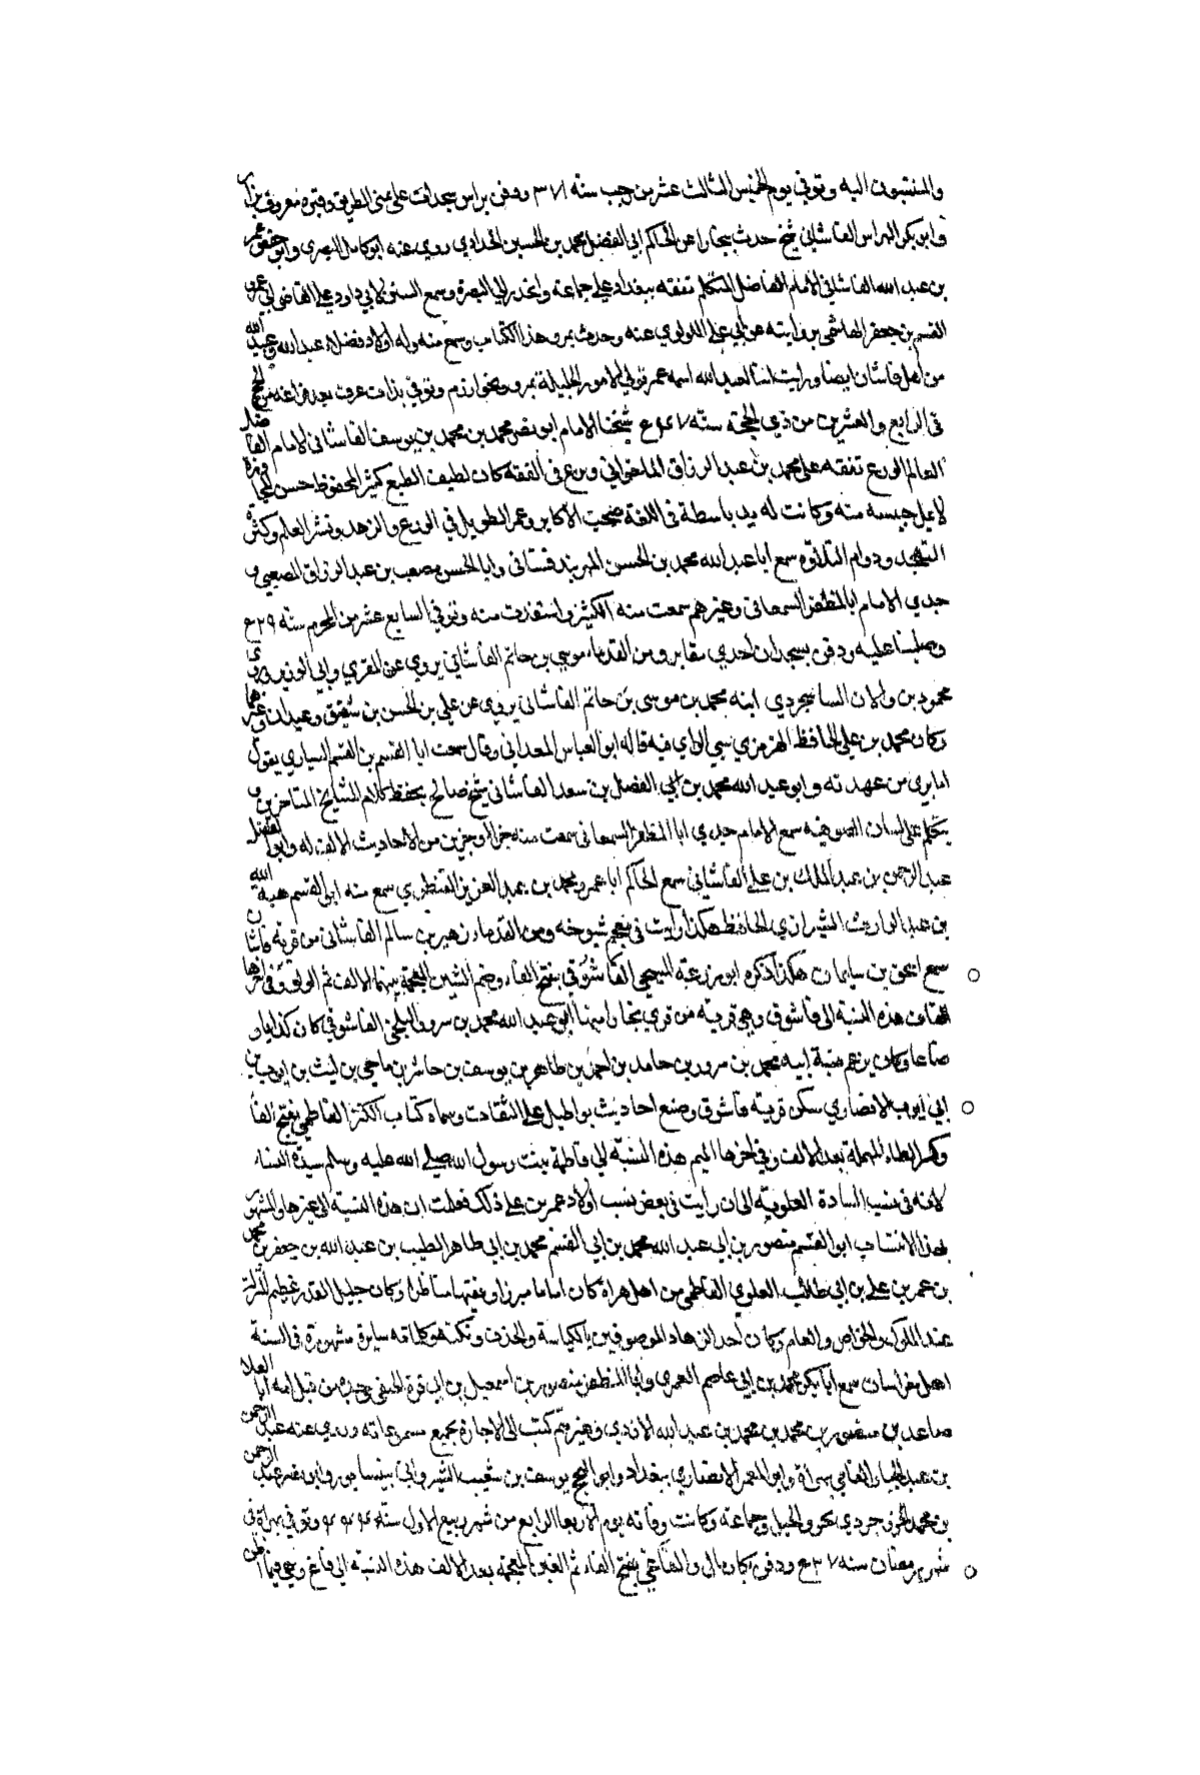 والمنتسبون اليه وتوفي يوم الخميس الثالث عشر من رجب سنة ٣٧١ ودفن براس سجدان على يمنى الطريق وقبره معروف يزار
وابو بكر الهراس الفاشاني شيخ حدث ببخارا عن الحاكم ابي الفضل محمد بن الحسين الحدادي روى عنه ابو كامل البصري وابو حفص عمر
بن عبد الله الفاشاني الامام الفاضل المتكلم تفقه ببغداد على جماعة وانحدر الى البصرة وسمع السنن لابي داود على القاضي ابي عمر
القسم بن جعفر الهاشمي بروايته عن ابي علي اللولوي عنه وحدث بمرو هذا الكتاب وسمع منه وله اولاد فضلاء عبد الله وعبيد الله
من اهل فاشان ايضا ورايت ابنا لعبد الله اسمه عمر تولى الامور الجليلة بمرو وبخوارزم وتوفي بذات عرق بعد فراغه من الحج
في الرابع والعشرين من ذي الحجة سنة شيخنا الامام ابو نصر محمد بن محمد بن يوسف الفاشاني الامام الفاضل
العالم الورع تفقه على محمد بن عبد الرزاق الماخواني وبرع في الفقه كان لطيف الطبع كثير المحفوظ حسن المحاورة
لا يمل جليسه منه وكانت له يد باسطة في اللغة صحب الاكابر وعمر الطويل في الورع والزهد ونشر العلم وكثرة
التهجد ودوام التلاوة سمع ابا عبد الله محمد بن الحسن المهربندقشاني وابا الحسن مصعب بن عبد الرزاق المصعبي و
جدي الامام ابا المظفر السمعاني وغيرهم سمعت منه الكثير واستفدت منه وتوفي السابع عشر من المحرم سنة
وصلينا عليه ودفن بسجدان احدى مقابر ومن القدماء موسى بن حاتم الفاشاني يروي عن المقري وابي الوزير روى
محمود بن والان الساسجردي ابنه محمد بن موسى بن حاتم الفاشاني يروي عن علي بن الحسن بن شقيق وعبدان وغيرهما
وكان محمد بن علي الحافظ الهرمزي سيئ الراي فيه قاله ابو العباس المعداني وقال سمعت ابا القسم بن القسم السياري يقول
انا بري من عهدته وابو عبد الله محمد بن ابي الفضل بن سعد الفاشاني شيخ صالح يحفظ كلام المشايخ المتاخرين و
يتكلم على لسان الصوفية سمع الامام جدي ابا المظفر السمعاني سمعت منه جزءا وجزين من الاحاديث الالف له وابو الفضل
عبد الرحمن بن عبد الملك بن علي الفاشاني سمع الحاكم ابا عمرو محمد بن عبد العزيز القنطري سمع منه ابو القسم هبة الله
بن عبد الوارث الشيرازي الحافظ هكذا رايت في معجم شيوخه ومن القدماء زهير بن سالم الفاشاني من قرية فاشان
سمع اسحق بن سليمان هكذا ذكره ابو زرعة السبحي الفاشوقي بفتح الفاء وضم الشين المعجمة بينهما الالف ثم الواو وفي اخرها
القاف هذه النسبة الى فاشوق وهي قرية من قرى بخارا منها ابو عبد الله محمد بن سرور البلخي الفاشوقي كان كذابا و
ضاعا وكان يزعم نسبة ابيه محمد بن سرور بن حامد بن احمد بن طاهر بن يوسف بن بن ماحي بن ليث بن ايوب بن
ابي ايوب الانصاري سكن قرية فاشوق وصنع احاديث بواطيل على الثقات وسماه كتاب الكنز الفاطمي بفتح الفا
وكسر الطاء المهملة بعد الالف وفي اخرها الميم هذه النسبة الى فاطمة بنت رسول الله صلى الله عليه وسلم سيدة النساء
لانه في نسب السادة العلوية الى ان رايت في بعض نسب اولاد عمر بن علي ذلك فعلمت ان هذه النسبة الى غيرها والمشهور
بهذا الانتساب ابو القسم منصور بن ابي عبد الله محمد بن ابي القسم محمد بن ابي طاهر الطيب بن عبد الله بن جعفر بن محمد
بن عمر بن علي بن ابي طالب العلوي الفاطمي من اهل هراة كان اماما مبرزا وفقيها مناظرا وكان جليل القدر عظيم المنزلة
عند الملوك والخواص والعام وكان احد الزهاد الموصوفين بالكياسة والحذق ونكته وكلماته سايرة مشهورة في السنة
اهل خراسان سمع ابا بكر محمد بن ابي عاصم العمري وابا المظفر منصور بن اسمعيل بن ابي قرة الحنفي وجده من قبل امه ابا العلا
صاعد بن منصور بن محمد بن محمد بن عبد الله الازدي وغيرهم كتب الي الاجازة بجميع مسموعاته وروى عنه عبد الرحمن
بن عبد الجبار الفامي بهراة وابو المعمر الانصاري ببغداد وابو الفتح يوسف بن شعيب بنيسابور وابو نصر عبد الرحمن
بن محمد الخرجردي بمرو والجبل وجماعة وكانت وفاته يوم الاربعا الرابع من شهر ربيع الاول سنة وتوفي بهراة في
شهر رمضان سنة ودفن والفاغي بفتح الفاء ثم الغين المعجمة بعد الالف هذه النسبة الى فاغ وهي فيما اظن